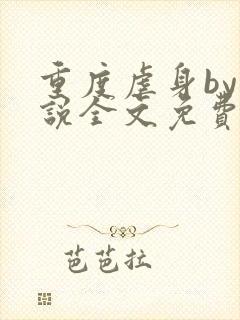 重度虐身by
说全文免费
芭芭拉